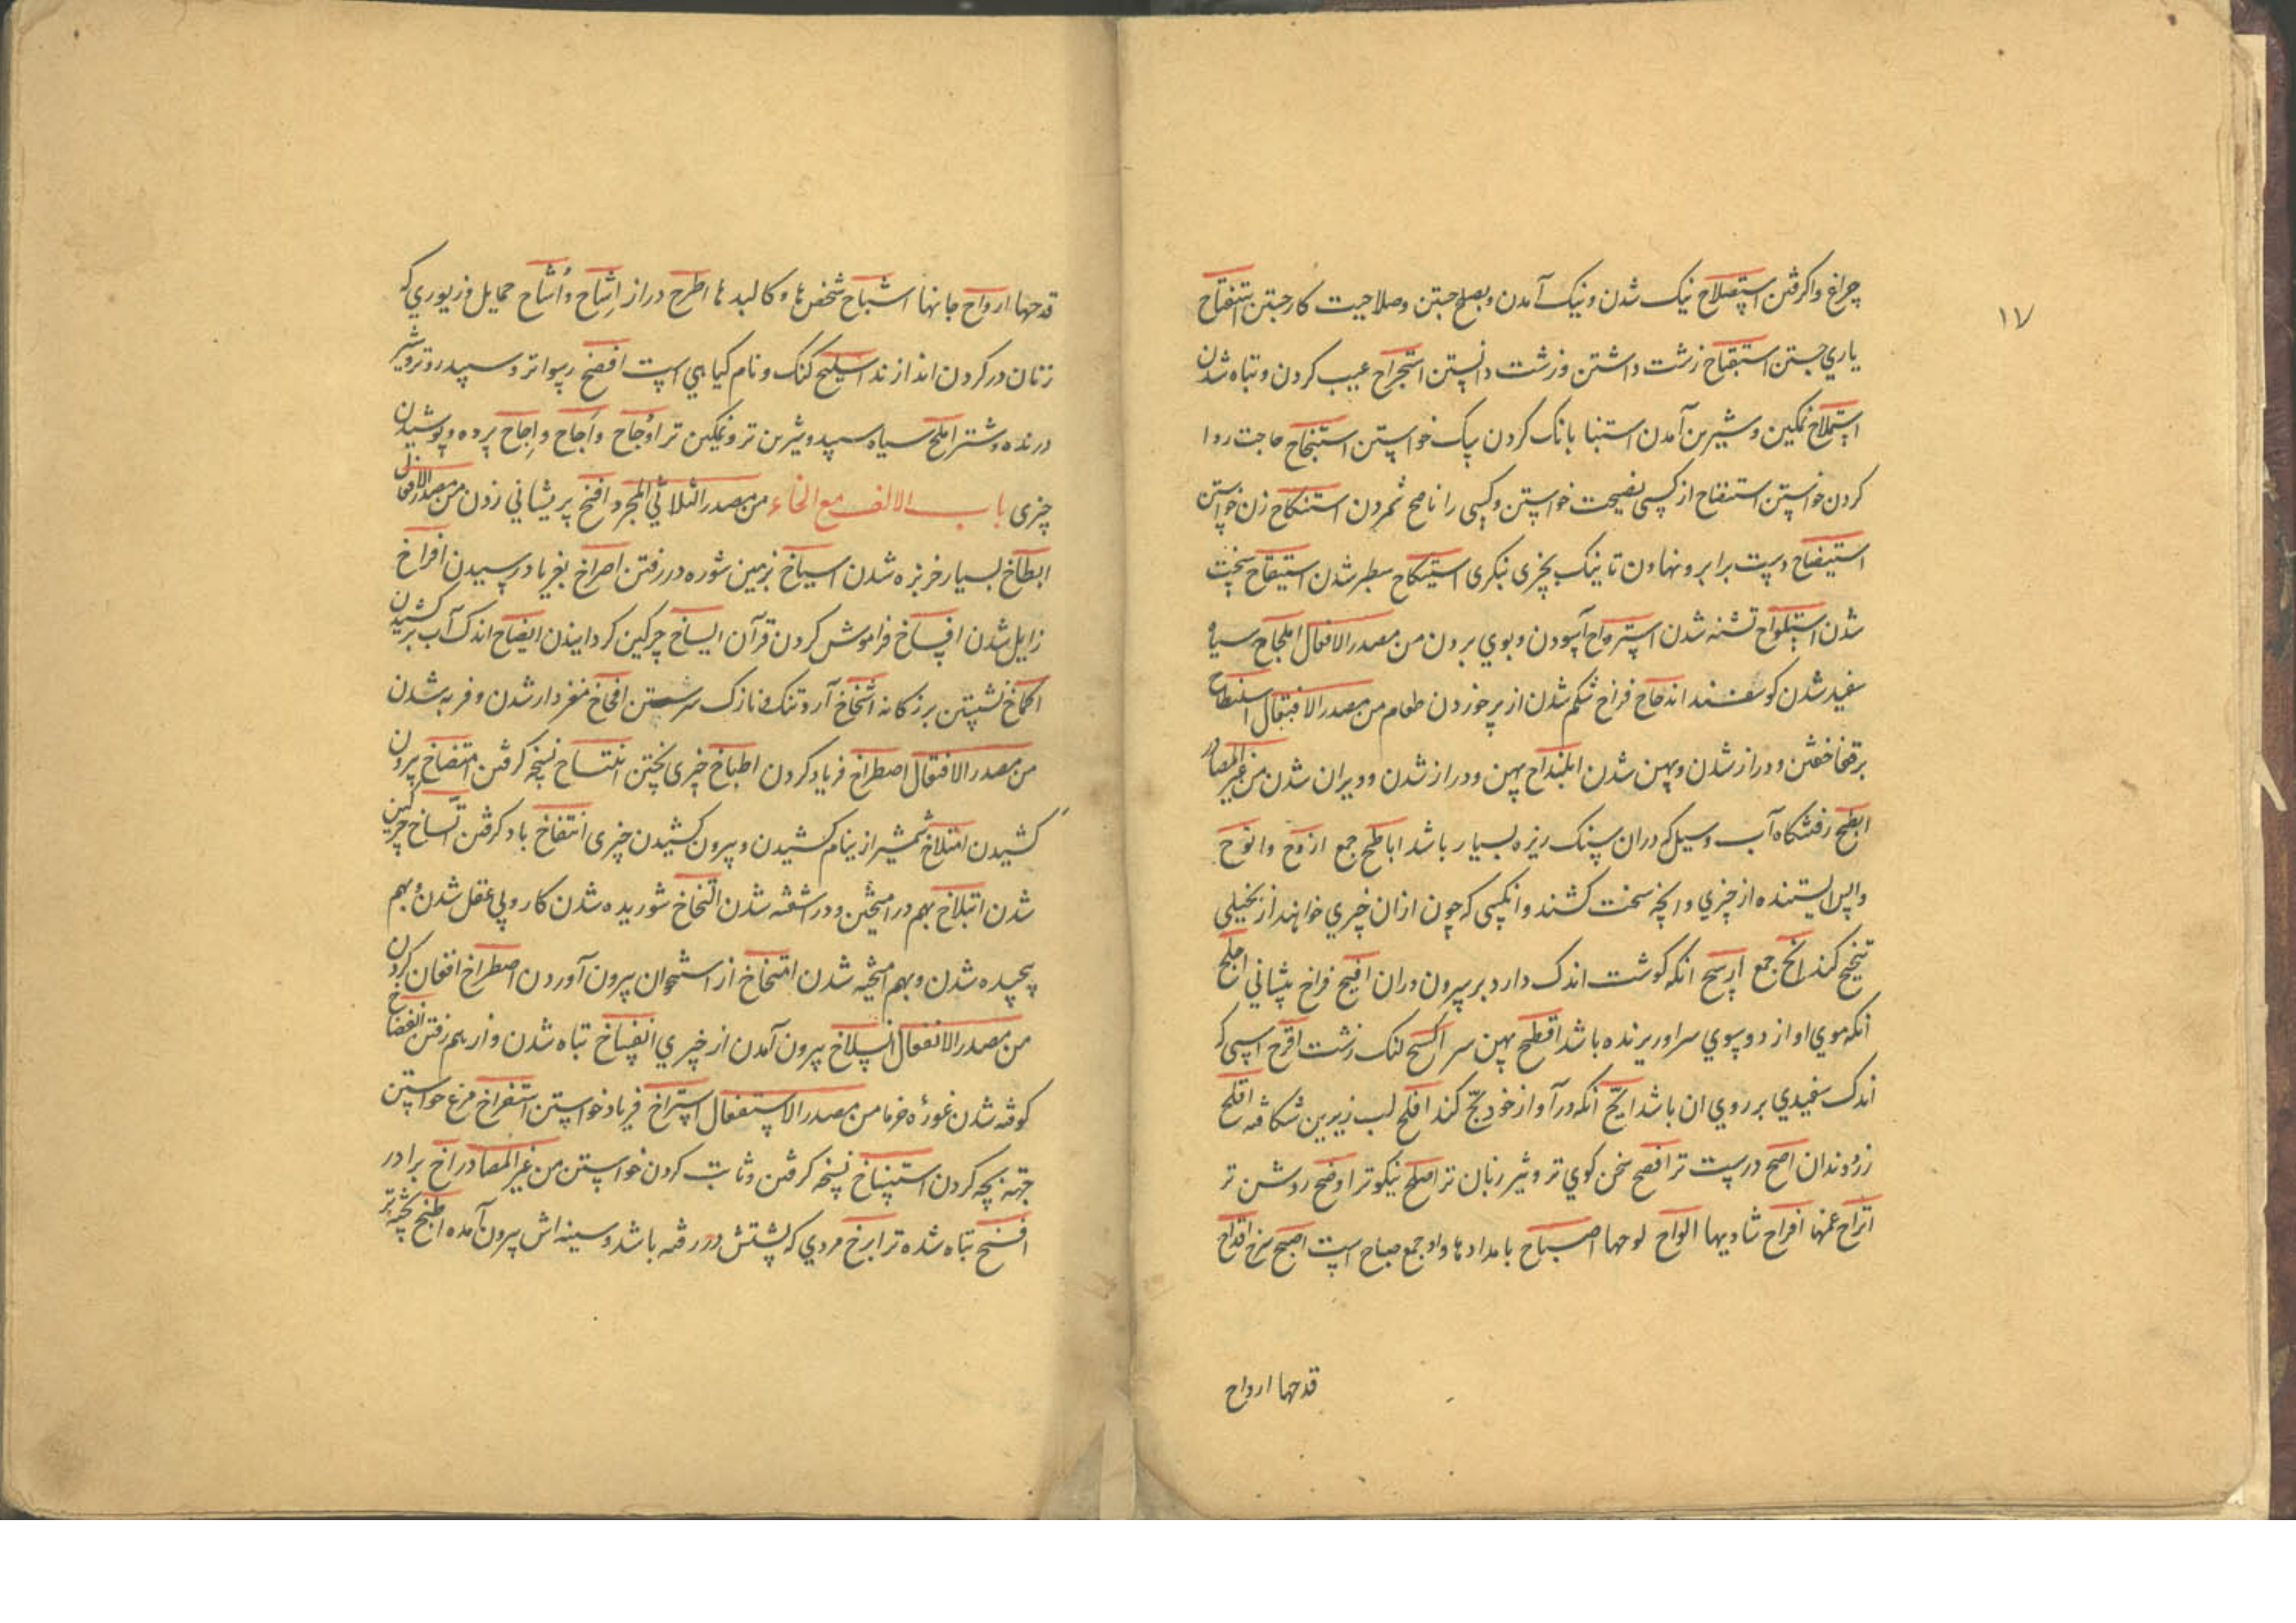 ۱۷
چراغ واکرفتن استصلاح نیک شدن ونیک آمدن وبصلح جستن وصلاحیت کار جستن استفتاح
یاري جستن استقباح زشت داشتن وزشت دانستن استجراح عیب کردن وتباه شدن
استملاح نمکین وشیرین آمدن استنبا بانک کردن سک خواستن استنجاح حاجت روا
کردن خواستن استنصاح از کسی نصیحت خواستن وکسی را ناصح شمردن استنکاح زن خواستن
استیضاح دست برابرو نهاون تا نیک بچیزی نبکری استیکاح سطبر شدن استیقاح سخت
شدن استلواح تشنه شدن استرواح آسودن وبوي بردن من مصدر الافعال املحاح سیاه
سفید شدن کوسفند اندحاح فراخ شکم شدن از پر خوردن طعام من مصدر الافتعال اسلنطاح
برقفا خفتن ودراز شدن وپهن شدن ابلنداح پهن ودراز شدن وویران شدن من غیر المصادر
ابطح رفتنکاه آب وسیل که دران سنک ریزه بسیار باشد اباطح جمع ازوح وانوح
واپس ایستنده از چیزي وانچه سخت کشند وانکسی که چون ازان چیزي خواهند از بخیلی
تنحنح کند انح جمع ارسح انکه کوشت اندک دارد بر سرون وران افیح فراخ پیشاني اجلح
انکه موي او از دو سوي سر اوریزنده باشد افطح پهن سر اکسح لنک زشت اقرح اسپی که
اندک سفیدي بر روي ان باشد ابح انکه در آواز خود بح کند افلح لب زیرین شکافته اقلح
زرد دندان اصح درست تر افصح سخن کوي تر وتیز زبان تر اصلح نیکوتر اوضح روشن تر
اتراح غمها افراح شادیها الواح لوحها اصباح بامدادها واو جمع صباح است اصبح سرخ اقداح
قدحها ارواح
قدحها ارواح جانها اشباح شخص ها وکالبد ها اطرح دراز اشاح واشاح حمایل وزیوري که
زنان در کردن اندازند اسلیح کنک ونام کیاهي است افضح رسواتر وسپید روتر وشیر
درنده وشتر املح سیاه سپید وشیرین تر ونمکین تر اوجاح واجاح واجاح پرده وپوشیدن
چیزی باب الالف مع الخاء من مصدر الثلاثي المجرد افنخ بر پیشاني زدن من مصدر الافعال
ابطاخ بسیار خربزه شدن اسباخ بزمین شوره در رفتن اصراخ بفریاد رسیدن افراخ
زایل شدن افساخ فراموش کردن قرآن ایساخ چرکین کردانیدن انضاخ اندک آب بر کشیدن
اکماخ نشستن بزرکانه اشخاخ آرد تنک ونازک سرشتن افخاخ مغزدار شدن وفربه شدن
من مصدر الافتعال اصطراخ فریاد کردن اطباخ چیزی پختن انتساخ نسخه کرفتن امتضاخ بیرون
کشیدن امتلاخ شمشیر از نیام کشیدن وبیرون کشیدن چیزی انتفاخ باد کرفتن اتساخ چرکین
شدن ابتلاخ بهم درامیختن ودر اشفته شدن التخاخ شوریده شدن کار وبي عقل شدن وبهم
پیچیده شدن وبهم امیخته شدن امتخاخ از استخوان بیرون آوردن اصطراخ افغان کردن
من مصدر الانفعال انسلاخ بیرون آمدن از چیزي انفساخ تباه شدن واز بهم رفتن انفضاخ
کوفته شدن غورهٔ خرما من مصدر الاستفعال استراخ فریاد خواستن استفراخ مرغ خواستن
جهه بچه کردن استنساخ نسخه کرفتن وثابت کردن خواستن من غیر المصادر اخ برادر
افسخ تباه شده تر ابزخ مردي که پشتش در رفته باشد وسینه اش بیرون آمده اطبخ پخته تر